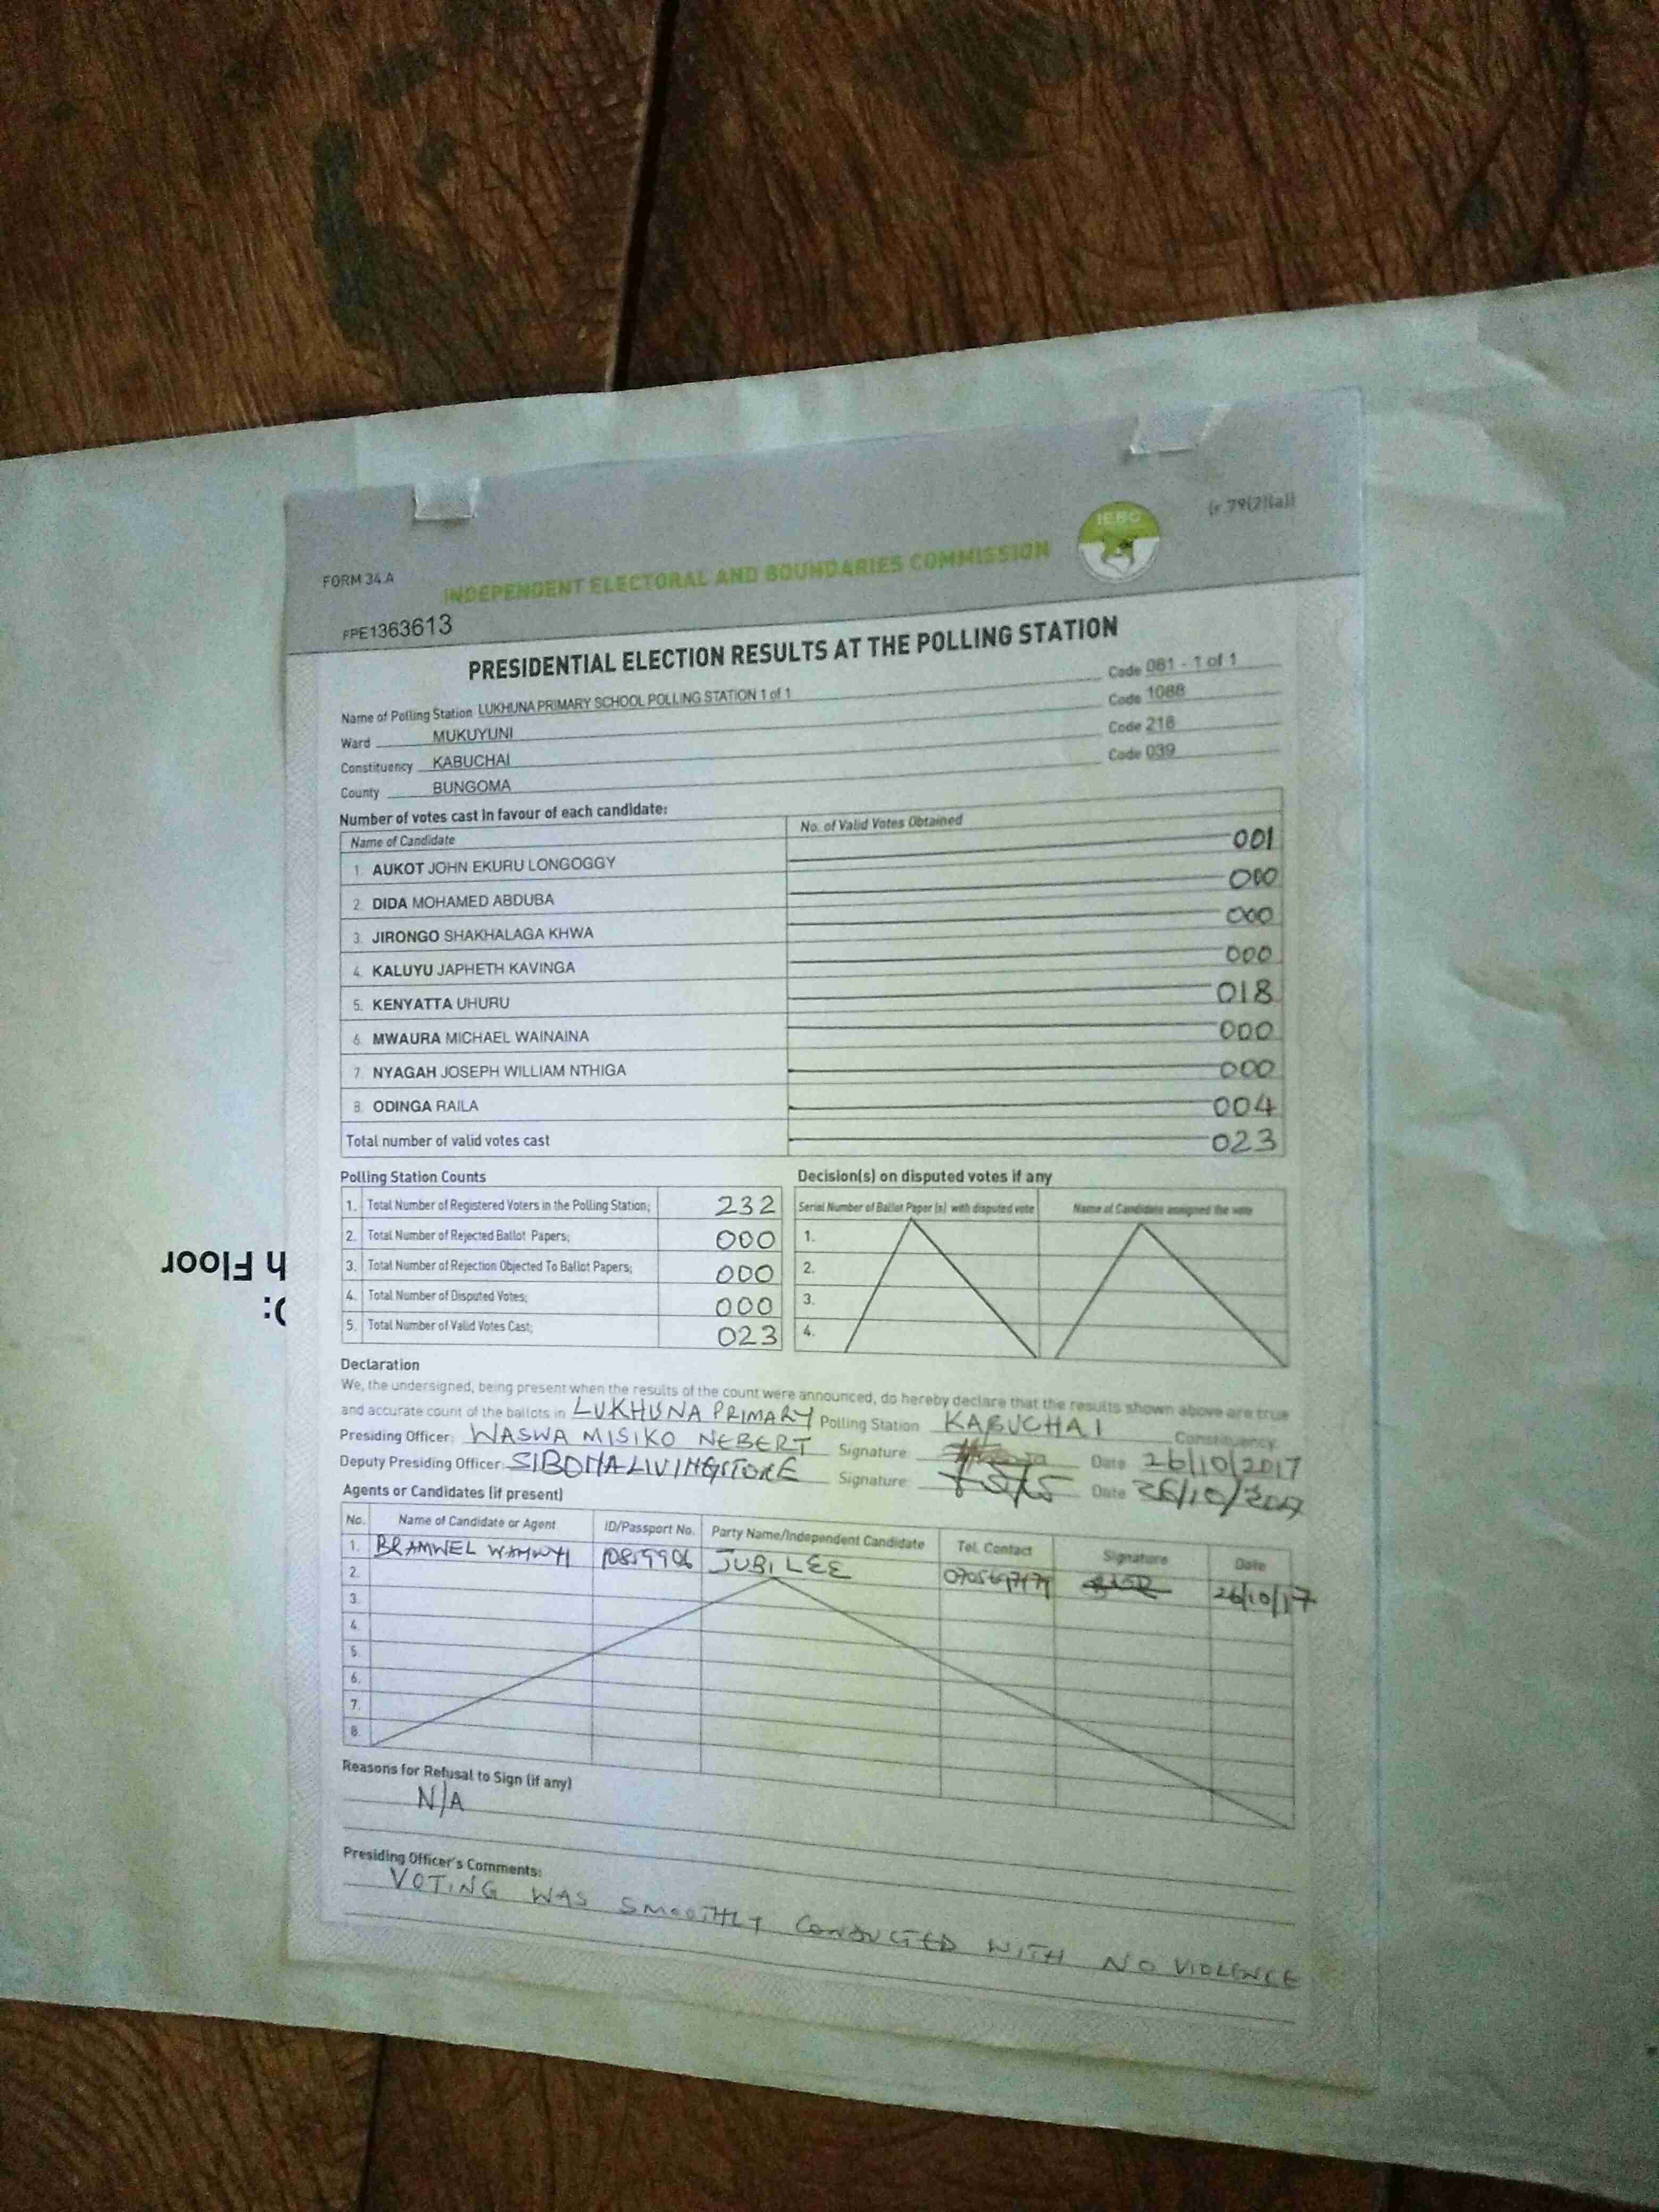 (r.79(2)(a))
IEBC
FORM 34 A
INDEPENDENT ELECTORAL AND BOUNDARIES COMMISSION
FPE1363613
PRESIDENTIAL ELECTION RESULTS AT THE POLLING STATION
Name of Polling Station LUKHUNA PRIMARY SCHOOL POLLING STATION 1 of 1 Code 081 - 1 of 1
Ward MUKUYUNI Code 1088
Constituency KABUCHAI Code 218
County BUNGOMA Code 039
Number of votes cast in favour of each candidate:
Name of Candidate No. of Valid Votes Obtained
1. AUKOT JOHN EKURU LONGOGGY 001
2. DIDA MOHAMED ABDUBA 000
3. JIRONGO SHAKHALAGA KHWA 000
4. KALUYU JAPHETH KAVINGA 000
5. KENYATTA UHURU 018
6. MWAURA MICHAEL WAINAINA 000
7. NYAGAH JOSEPH WILLIAM NTHIGA 000
8. ODINGA RAILA 004
Total number of valid votes cast 023
Polling Station Counts
1. Total Number of Registered Voters in the Polling Station; 232
2. Total Number of Rejected Ballot Papers; 000
3. Total Number of Rejection Objected To Ballot Papers; 000
4. Total Number of Disputed Votes; 000
5. Total Number of Valid Votes Cast; 023
Decision(s) on disputed votes if any
Serial Number of Ballot Paper (s) with disputed vote Name of Candidate assigned the vote
1.
2.
3.
4.
Declaration
We, the undersigned, being present when the results of the count were announced, do hereby declare that the results shown above are true
and accurate count of the ballots in LUKHUNA PRIMARY Polling Station KABUCHAI Constituency.
Presiding Officer: WASWA MISIKO NEBERT Signature Date 26/10/2017
Deputy Presiding Officer: Signature Date 26/10/2017
Agents or Candidates (if present)
No. Name of Candidate or Agent ID/Passport No. Party Name/Independent Candidate Tel. Contact Signature Date
1. BRAMWEL JUBILEE 26/10/17
2.
3.
4.
5.
6.
7.
8.
Reasons for Refusal to Sign (if any)
N/A
Presiding Officer's Comments:
VOTING WAS SMOOTHLY CONDUCTED WITH NO VIOLENCE
h Floor